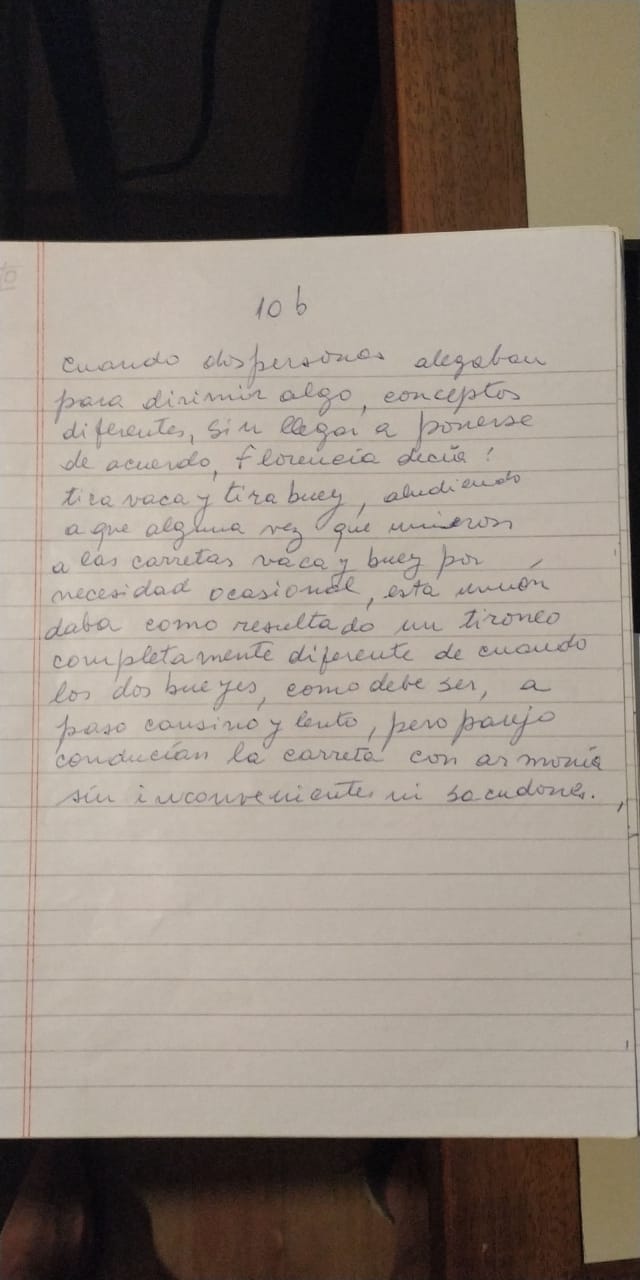 10 b
cuando dos personas alegaban
para dirimir algo, conceptos
diferentes, sin llegar a ponerse
de acuerdo, Florencia decía:
tira vaca y tira buey, aludiendo
a que alguna vez que unieron
a las carretas vaca y buey por
necesidad ocasional, esta unión
daba como resultado un tironeo
completamente diferente de cuando
los dos bueyes, como debe ser, a
paso cansino y lento, pero parejo
conducían la carreta con armonía
sin inconvenientes ni sacudones.